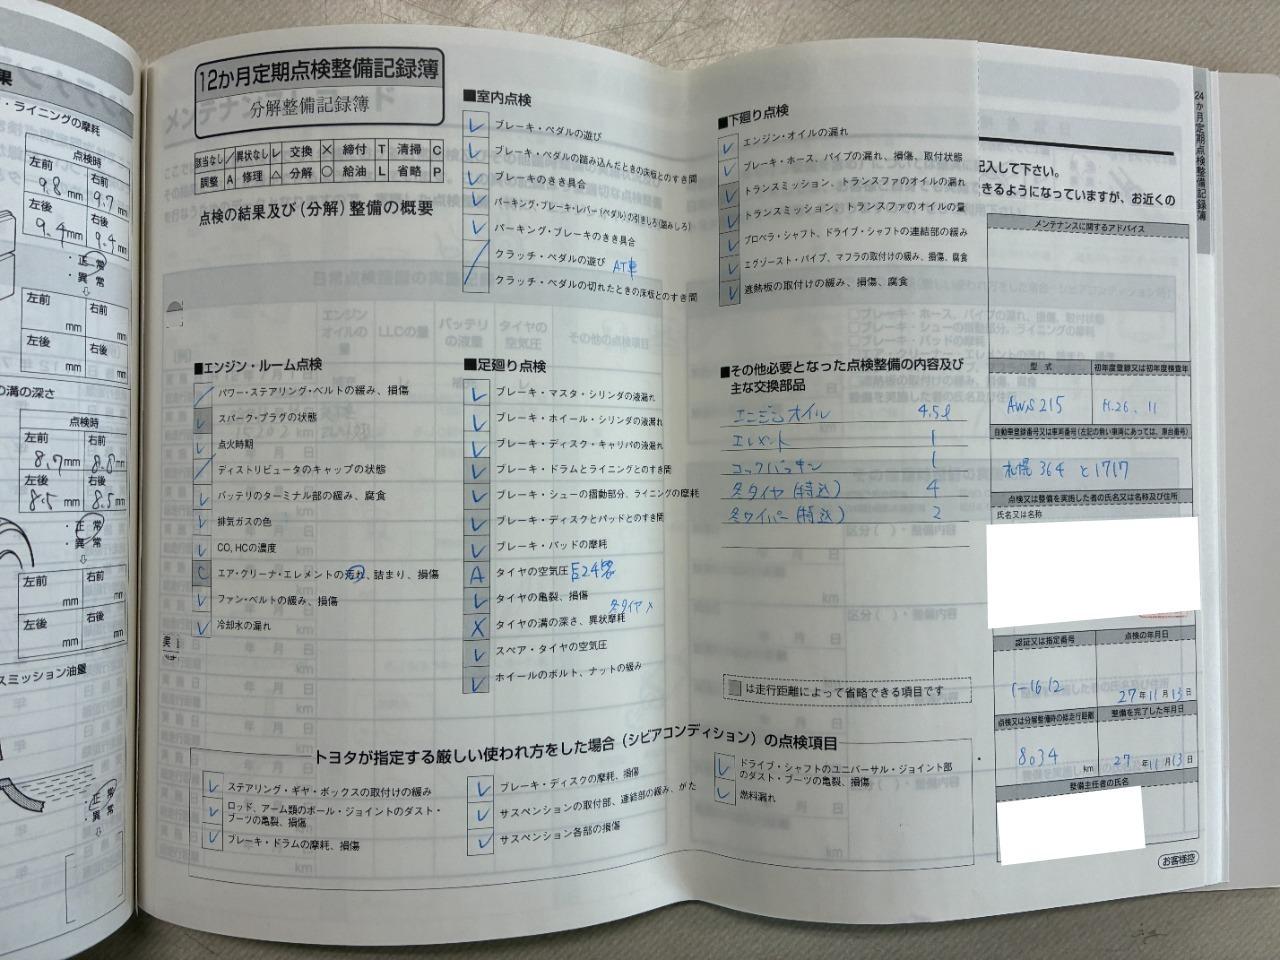 12か月定期点検整備記録簿
分解整備記録簿
該当なし ／ 異状なし レ 交換 × 締付 T 清掃 C
調整 A 修理 △ 分解 ○ 給油 L 省略 P
点検の結果及び(分解)整備の概要
■室内点検
レ ブレーキ・ペダルの遊び
レ ブレーキ・ペダルの踏み込んだときの床板とのすき間
レ ブレーキのきき具合
レ パーキング・ブレーキ・レバー(ペダル)の引きしろ(踏みしろ)
レ パーキング・ブレーキのきき具合
／ クラッチ・ペダルの遊び AT車
／ クラッチ・ペダルの切れたときの床板とのすき間
■下廻り点検
レ エンジン・オイルの漏れ
レ ブレーキ・ホース、パイプの漏れ、損傷、取付状態
レ トランスミッション、トランスファのオイルの漏れ
レ トランスミッション、トランスファのオイルの量
レ プロペラ・シャフト、ドライブ・シャフトの連結部の緩み
レ エグゾースト・パイプ、マフラの取付けの緩み、損傷、腐食
レ 遮熱板の取付けの緩み、損傷、腐食
■エンジン・ルーム点検
／ パワー・ステアリング・ベルトの緩み、損傷
レ スパーク・プラグの状態
レ 点火時期
／ ディストリビュータのキャップの状態
レ バッテリのターミナル部の緩み、腐食
レ 排気ガスの色
レ CO,HCの濃度
C エア・クリーナ・エレメントの汚れ、詰まり、損傷
レ ファン・ベルトの緩み、損傷
レ 冷却水の漏れ
■足廻り点検
レ ブレーキ・マスタ・シリンダの液漏れ
レ ブレーキ・ホイール・シリンダの液漏れ
レ ブレーキ・ディスク・キャリパの液漏れ
レ ブレーキ・ドラムとライニングとのすき間
レ ブレーキ・シューの摺動部分、ライニングの摩耗
レ ブレーキ・ディスクとパッドとのすき間
レ ブレーキ・パッドの摩耗
A タイヤの空気圧
レ タイヤの亀裂、損傷
冬タイヤ
X タイヤの溝の深さ、異状摩耗
レ スペア・タイヤの空気圧
レ ホイールのボルト、ナットの緩み
■その他必要となった点検整備の内容及び
主な交換部品
エンジンオイル 4.5ℓ
エレメント 1
コックパッキン 1
冬タイヤ(持込) 4
冬ワイパー(持込) 2
は走行距離によって省略できる項目です
トヨタが指定する厳しい使われ方をした場合(シビアコンディション)の点検項目
レ ステアリング・ギヤ・ボックスの取付けの緩み
レ ロッド、アーム類のボール・ジョイントのダスト・
ブーツの亀裂、損傷
レ ブレーキ・ドラムの摩耗、損傷
レ ブレーキ・ディスクの摩耗、損傷
レ サスペンションの取付部、連結部の緩み、がた
レ サスペンション各部の損傷
レ ドライブ・シャフトのユニバーサル・ジョイント部
のダスト・ブーツの亀裂、損傷
レ 燃料漏れ
24か月定期点検整備記録簿
記入して下さい。
きるようになっていますが、お近くの
メンテナンスに関するアドバイス
型式 初年度登録又は初年度検査年
AWS215 H.26.11
自動車登録番号又は車両番号(左記の無い車両にあっては、車台番号)
札幌364 と1717
点検又は整備を実施した者の氏名又は名称及び住所
氏名又は名称
認証又は指定番号 点検の年月日
1-1612 27年11月13日
点検又は分解整備時の総走行距離 整備を完了した年月日
8034km 27年11月13日
整備主任者の氏名
お客様控
果
・ライニングの摩耗
点検時
左前 右前
9.8mm 9.7mm
左後 右後
9.4mm 9.4mm
・正常
・異常
左前 右前
mm mm
左後 右後
mm mm
の溝の深さ
点検時
左前 右前
8.7mm 8.8mm
左後 右後
8.5mm 8.5mm
・正常
・異常
左前 右前
mm mm
左後 右後
mm mm
スミッション油量
・正常
・異常